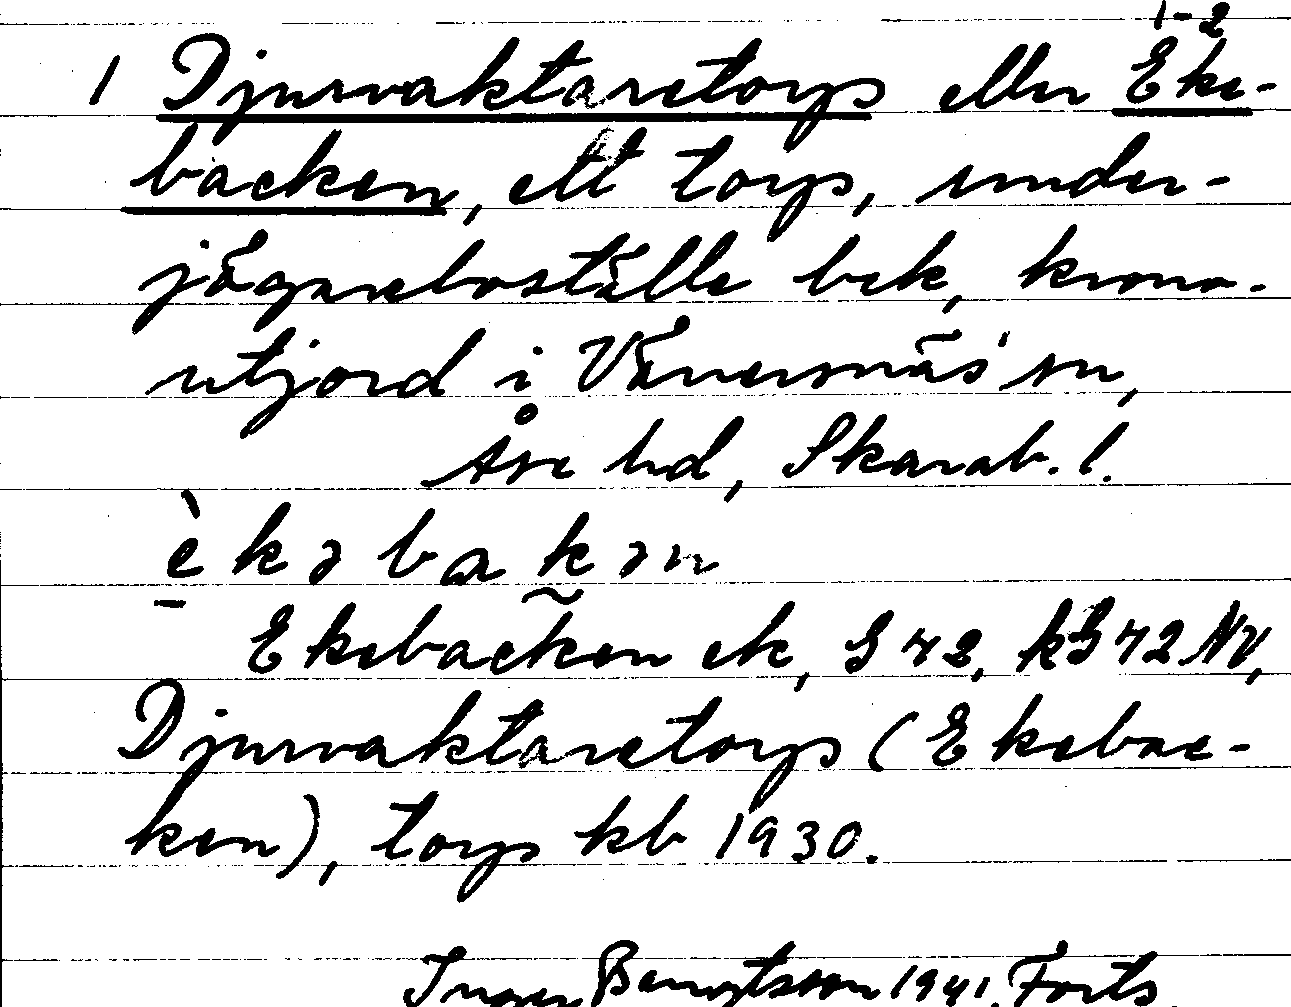 1-2
1 Djurvaktaretorp eller Eke-
backen, ett torp, under-
jägareboställe bek, krono-
utjord i Vänersnäs sn,
Åse hd, Skarab. l.
è k ə b a k ə n
Ekebacken ek, G 42, kG 42 NV,
Djurvaktaretorp (Ekebac-
ken), torp kb 1930.
Inger Bengtsson 1941. Forts.